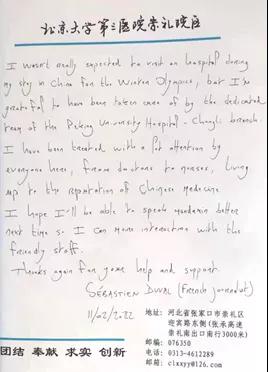 北京大学第三医院崇礼院区
I wasn't really expected to visit an hospital during
my stay in China for the Winter Olympics, but I'm
grateful to have been taken care of by the dedicated
team of the Peking University Hospital - Chongli branch.
I have been treated with a lot attention by
everyone here, from doctors to nurses, living
up to the reputation of Chinese medicine
I hope I'll be able to speak mandarin better
next time so I can more interaction with the
friendly staff.
Thanks again for your help and support
SÉBASTIEN DUVAL (French journalist)
11/02/2022
地址:河北省张家口市崇礼区
迎宾路东侧(张承高速
崇礼南出口南行3000米)
邮编:076350
电话:0313-4612289
邮箱:clxxyy@126.com
团结 奉献 求实 创新